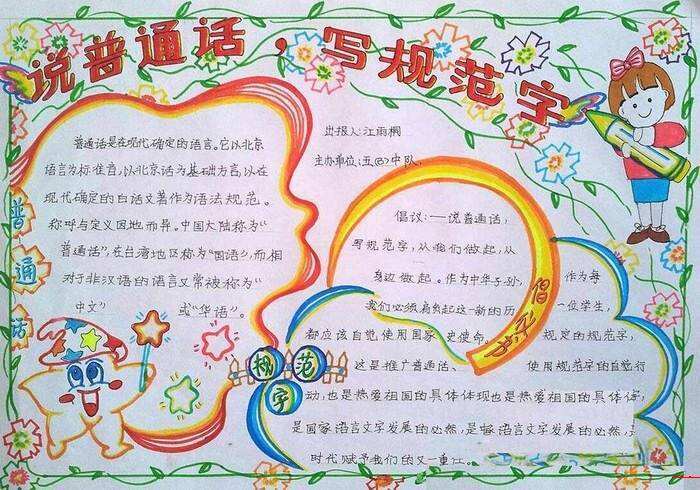 说普通话，写规范字
普通话是在现代确定的语言。它以北京
语言为标准音，以北京话为基础方言，以在
现代确定的白话文著作为语法规范。
称呼与定义因地而异。中国大陆称为“
普通话”，在台湾地区称为“国语”，而相
对于非汉语的语言又常被称为“
中文” 或“华语”。
普通话
出报人：江雨桐
主办单位：五(四)中队
倡议：——说普通话，
写规范字，从我们做起，从
身边做起。作为中华子孙，
我们必须肩负起这一新的历
史使命。
倡
规范字
作为每
一位学生，
都应该自觉使用国家
规定的规范字，
这是推广普通话、
使用规范字的自觉行
动，也是热爱祖国的具体体现也是热爱祖国的具体体
是国家语言文字发展的必然，是
语言文字发展的必然，
时代赋予我们的又一重